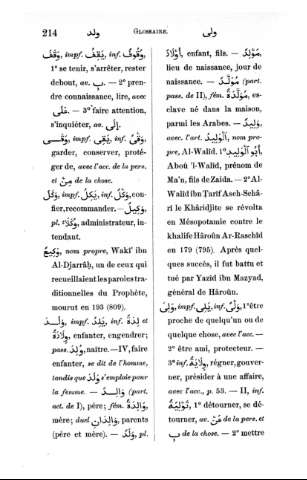 214 ولد GLOSSAIRE. ولى
وَقَفَ, impf. يَقِفُ, inf. وُقُوفٌ,
1° se tenir, s'arrêter, rester
debout, av. ب. — 2° pren-
dre connaissance, lire, avec
عَلَى. — 3° faire attention,
s'inquiéter, av. إِلَى.
وَقَى, impf. يَقِى, inf. وَقْىٌ,
garder, conserver, proté-
ger de, avec l'acc. de la pers.
et مِنْ de la chose.
وَكَلَ, impf. يَكِلُ, inf. وَكْلٌ, con-
fier, recommander. — وَكِيلٌ,
pl. وُكَلَاءُ, administrateur, in-
tendant.
وَكِيعٌ, nom propre, Wakî' ibn
Al-Djarrâḥ, un de ceux qui
recueillaient les paroles tra-
ditionnelles du Prophète,
mourut en 193 (809).
وَلَدَ, impf. يَلِدُ, inf. لِدَةٌ et
وِلَادَةٌ, enfanter, engendrer;
pass. وُلِدَ, naître. — IV, faire
enfanter, se dit de l'homme,
tandis que وَلَدَ s'emploie pour
la femme. — وَالِدٌ (part.
act. de I), père; fém. وَالِدَةٌ,
mère; duel وَالِدَانِ, parents
(père et mère). — وَلَدٌ, pl.
أَوْلَادٌ, enfant, fils. — مَوْلِدٌ,
lieu de naissance, jour de
naissance. — مُوَلَّدٌ (part.
pass. de II), fém. مُوَلَّدَةٌ, es-
clave né dans la maison,
parmi les Arabes. — وَلِيدٌ,
avec l'art. الْوَلِيدُ, nom pro-
pre, Al-Walîd. 1° أَبُو الْوَلِيدِ,
Aboû 'l-Walîd, prénom de
Ma'n, fils de Zaïda. — 2° Al-
Walîd ibn Ṭarîf Asch-Schâ-
rî le Khâridjite se révolta
en Mésopotamie contre le
khalife Hâroûn Ar-Raschîd
en 179 (795). Après quel-
ques succès, il fut battu et
tué par Yazîd ibn Mazyad,
général de Hâroûn.
وَلِىَ, impf. يَلِى, inf. وَلْىٌ, 1° être
proche de quelqu'un ou de
quelque chose, avec l'acc. —
2° être ami, protecteur. —
3° inf. وِلَايَةٌ, régner, gouver-
ner, présider à une affaire,
avec l'acc., p. 53. — II, inf.
تَوْلِيَةٌ, 1° détourner, se dé-
tourner, av. عَنْ de la pers. et
ب de la chose. — 2° mettre